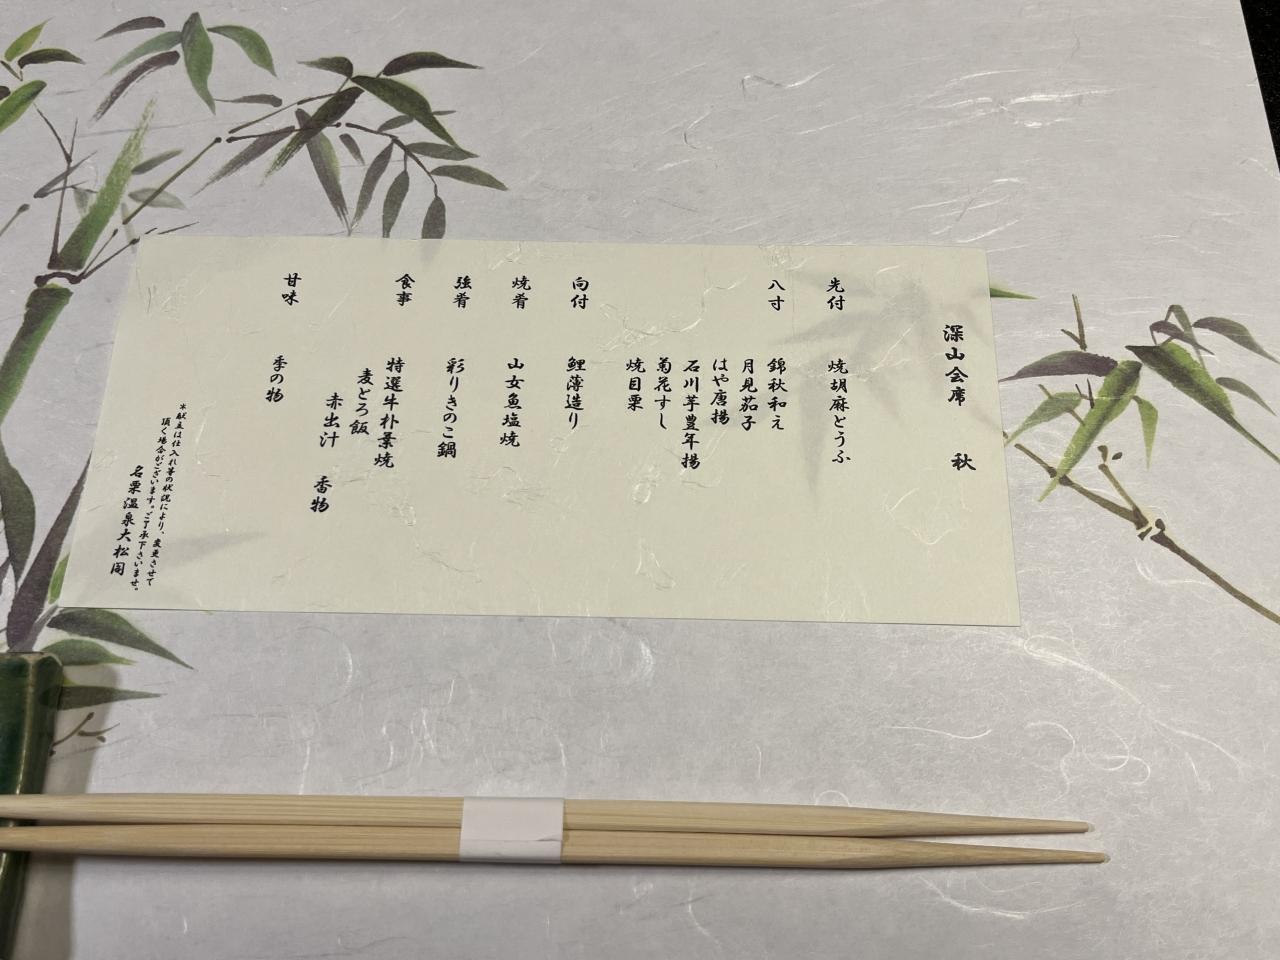 深山会席　秋
先付　焼胡麻どうふ
八寸　錦秋和え
月見茄子
はや唐揚
石川芋豊年揚
菊花すし
焼目栗
向付　鯉薄造り
焼肴　山女魚塩焼
強肴　彩りきのこ鍋
食事　特選牛朴葉焼
麦とろ飯
赤出汁　香物
甘味　季の物
※献立は仕入れ等の状況により、変更させて
頂く場合がございます。ご了承下さいませ。
名栗温泉大松閣